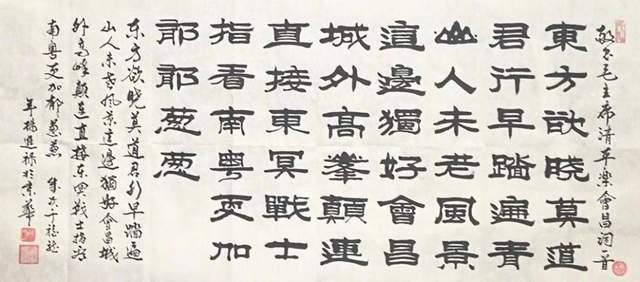 敬書毛主席清平樂會昌詞一首
東方欲曉莫道
君行早踏遍青
山人未老風景
這邊獨好會昌
城外高峯顛連
直接東冥戰士
指看南粤更加
郁郁葱葱
东方欲晓莫道君行早踏遍
山人未老风景这边独好会昌城
外高峰颠连直接东冥战士指看
南粤更加郁郁葱葱
年楊進禄於京華